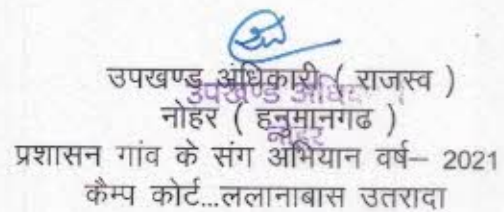 उपखण्ड अधिकारी ( राजस्व )
उपखण्ड अधि
नोहर ( हनुमानगढ )
नोहर
प्रशासन गांव के संग अभियान वर्ष– 2021
कैम्प कोर्ट...ललानाबास उतरादा